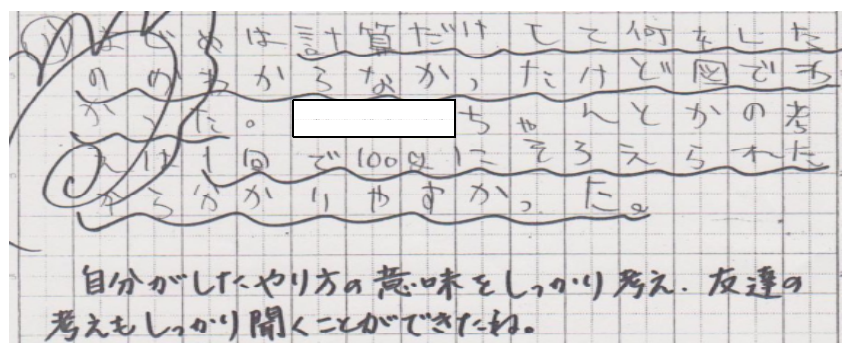 はじめは計算だけして何をした
のかわからなかったけど図でわ
かった。ちゃんとかの考
えは1回で100gにそろえられた
から分かりやすかった。
自分がしたやり方の意味をしっかり考え、友達の
考えもしっかり聞くことができたね。